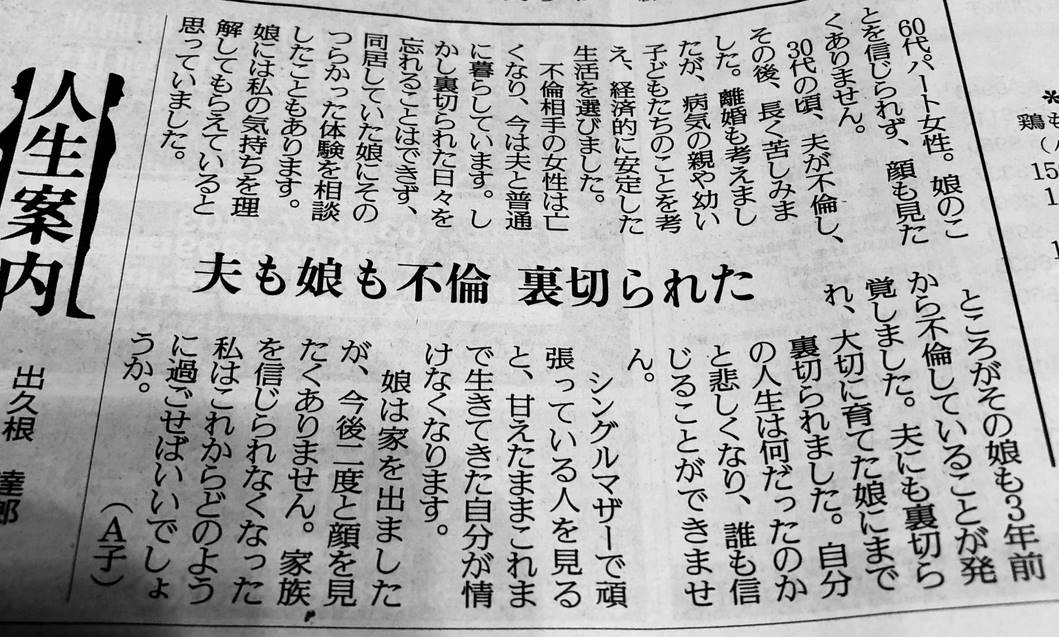 鶏も
15
人生案内
出久根 達郎
夫も娘も不倫 裏切られた
60代パート女性。娘のこ
とを信じられず、顔も見た
くありません。
30代の頃、夫が不倫し、
その後、長く苦しみま
した。離婚も考えまし
たが、病気の親や幼い
子どもたちのことを考
え、経済的に安定した
生活を選びました。
不倫相手の女性は亡
くなり、今は夫と普通
に暮らしています。し
かし裏切られた日々を
忘れることはできず、
同居していた娘にその
つらかった体験を相談
したこともあります。
娘には私の気持ちを理
解してもらえていると
思っていました。
ところがその娘も3年前
から不倫していることが発
覚しました。夫にも裏切ら
れ、大切に育てた娘にまで
裏切られました。自分
の人生は何だったのか
と悲しくなり、誰も信
じることができませ
ん。
シングルマザーで頑
張っている人を見る
と、甘えたままこれま
で生きてきた自分が情
けなくなります。
娘は家を出ました
が、今後二度と顔を見
たくありません。家族
を信じられなくなった
私はこれからどのよう
に過ごせばいいでしょ
うか。
(A子)